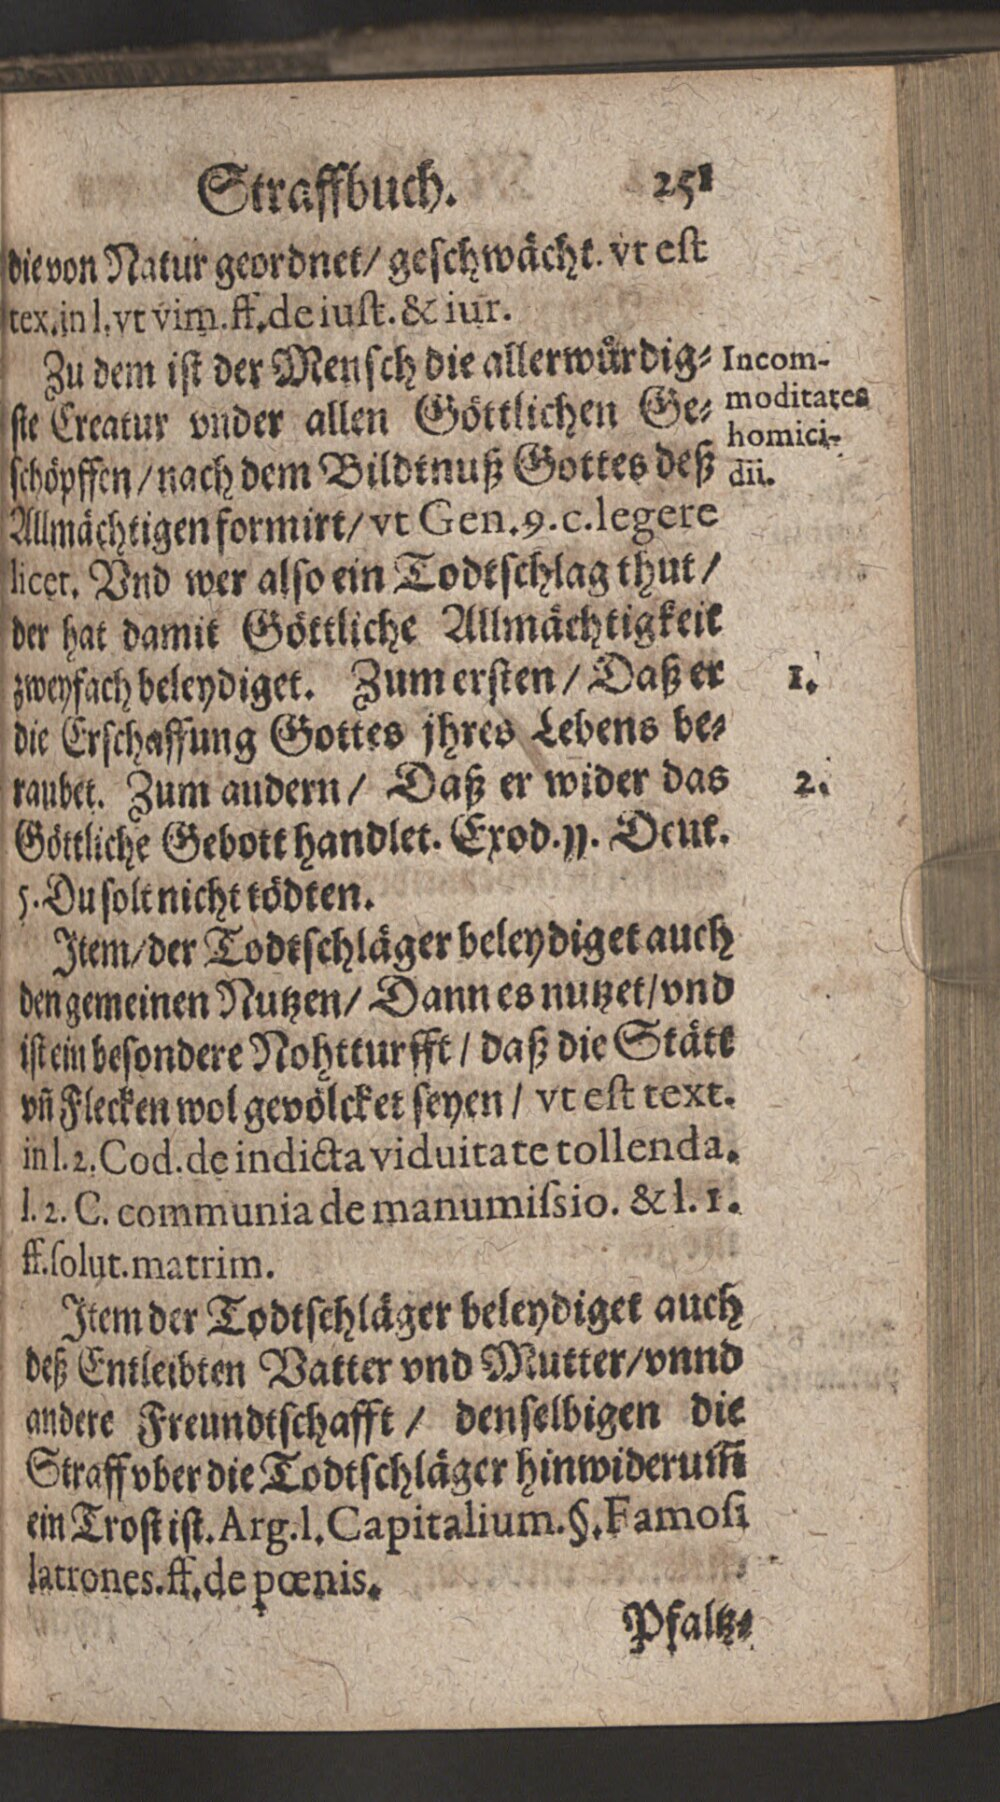 Straffbuch. 251
die von Natur geordnet/ geschwächt. vt est
tex. in l. vt vim. ff. de iust. & iur.
Zu dem ist der Mensch die allerwuͤrdig⸗
ste Creatur vnder allen Göttlichen Ge⸗
schöpffen/ nach dem Bildtnuß Gottes deß
Allmächtigen formirt/ vt Gen. 9. c. legere
licet. Vnd wer also ein Todtschlag thut/
der hat damit Göttliche Allmächtigkeit
zweyfach beleydiget. Zum ersten/ Daß er
die Erschaffung Gottes jhres Lebens be⸗
raubet. Zum andern/ Daß er wider das
Göttliche Gebott handlet. Exod. 11. Deut.
5. Du solt nicht tödten.
Item/ der Todtschläger beleydiget auch
den gemeinen Nutzen/ Dann es nutzet/ vnd
ist ein besondere Nohtturfft/ daß die Stätt
vñ Flecken wol gevölcket seyen/ vt est text.
in l. 2. Cod. de indicta viduitate tollenda.
l. 2. C. communia de manumissio. & l. 1.
ff. solut. matrim.
Item der Todtschläger beleydiget auch
deß Entleibten Vatter vnd Mutter/ vnnd
andere Freundtschafft/ denselbigen die
Straff vber die Todtschläger hinwiderum̃
ein Trost ist. Arg. l. Capitalium. §. Famosi
latrones. ff. de pœnis.
Pfaltz⸗
Incom-
moditates
homici-
dii.
1.
2.